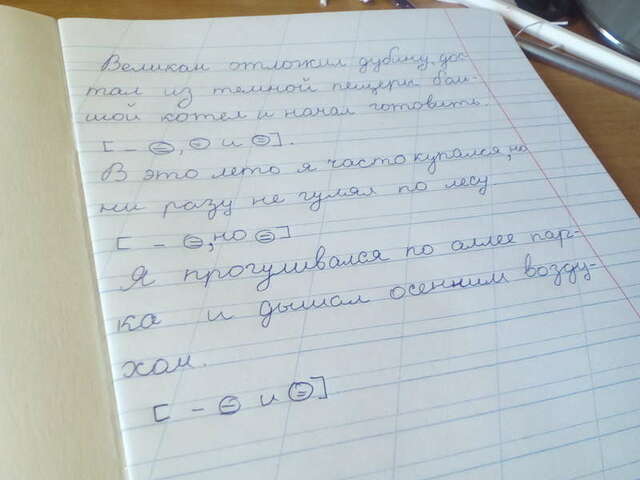 Великан отложил дубину, дос-
тал из темной пещеры боль-
шой котел и начал готовить.
[ – ⊜, ⊜ и ⊜].
В это лето я часто купался, но
ни разу не гулял по лесу.
[ – ⊜, но ⊜]
Я прогуливался по аллее пар-
ка и дышал осенним возду-
хом.
[ – ⊜ и ⊜]